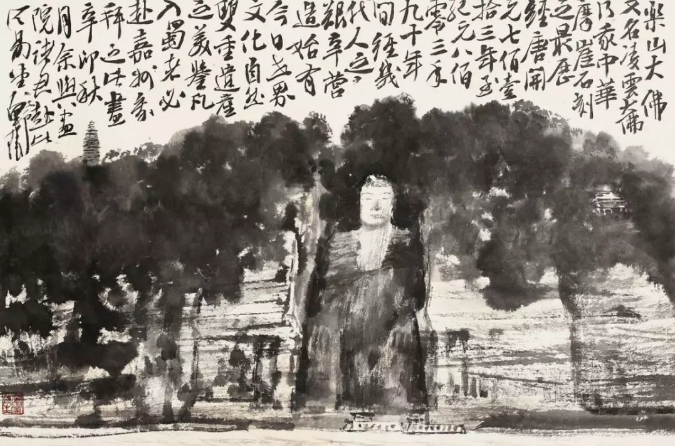 樂山大佛
又名凌雲大佛
乃我中華
摩崖石刻
之最歷
經唐開
元七佰壹
拾三年至
紀元八佰
零三年
九十年
間經幾
代人之
艱辛營
造始有
今日世界
文化自然
雙重遺產
之美譽凡
入蜀者必
赴嘉州
拜之此畫
辛卯秋
月余與畫
院諸君赴此